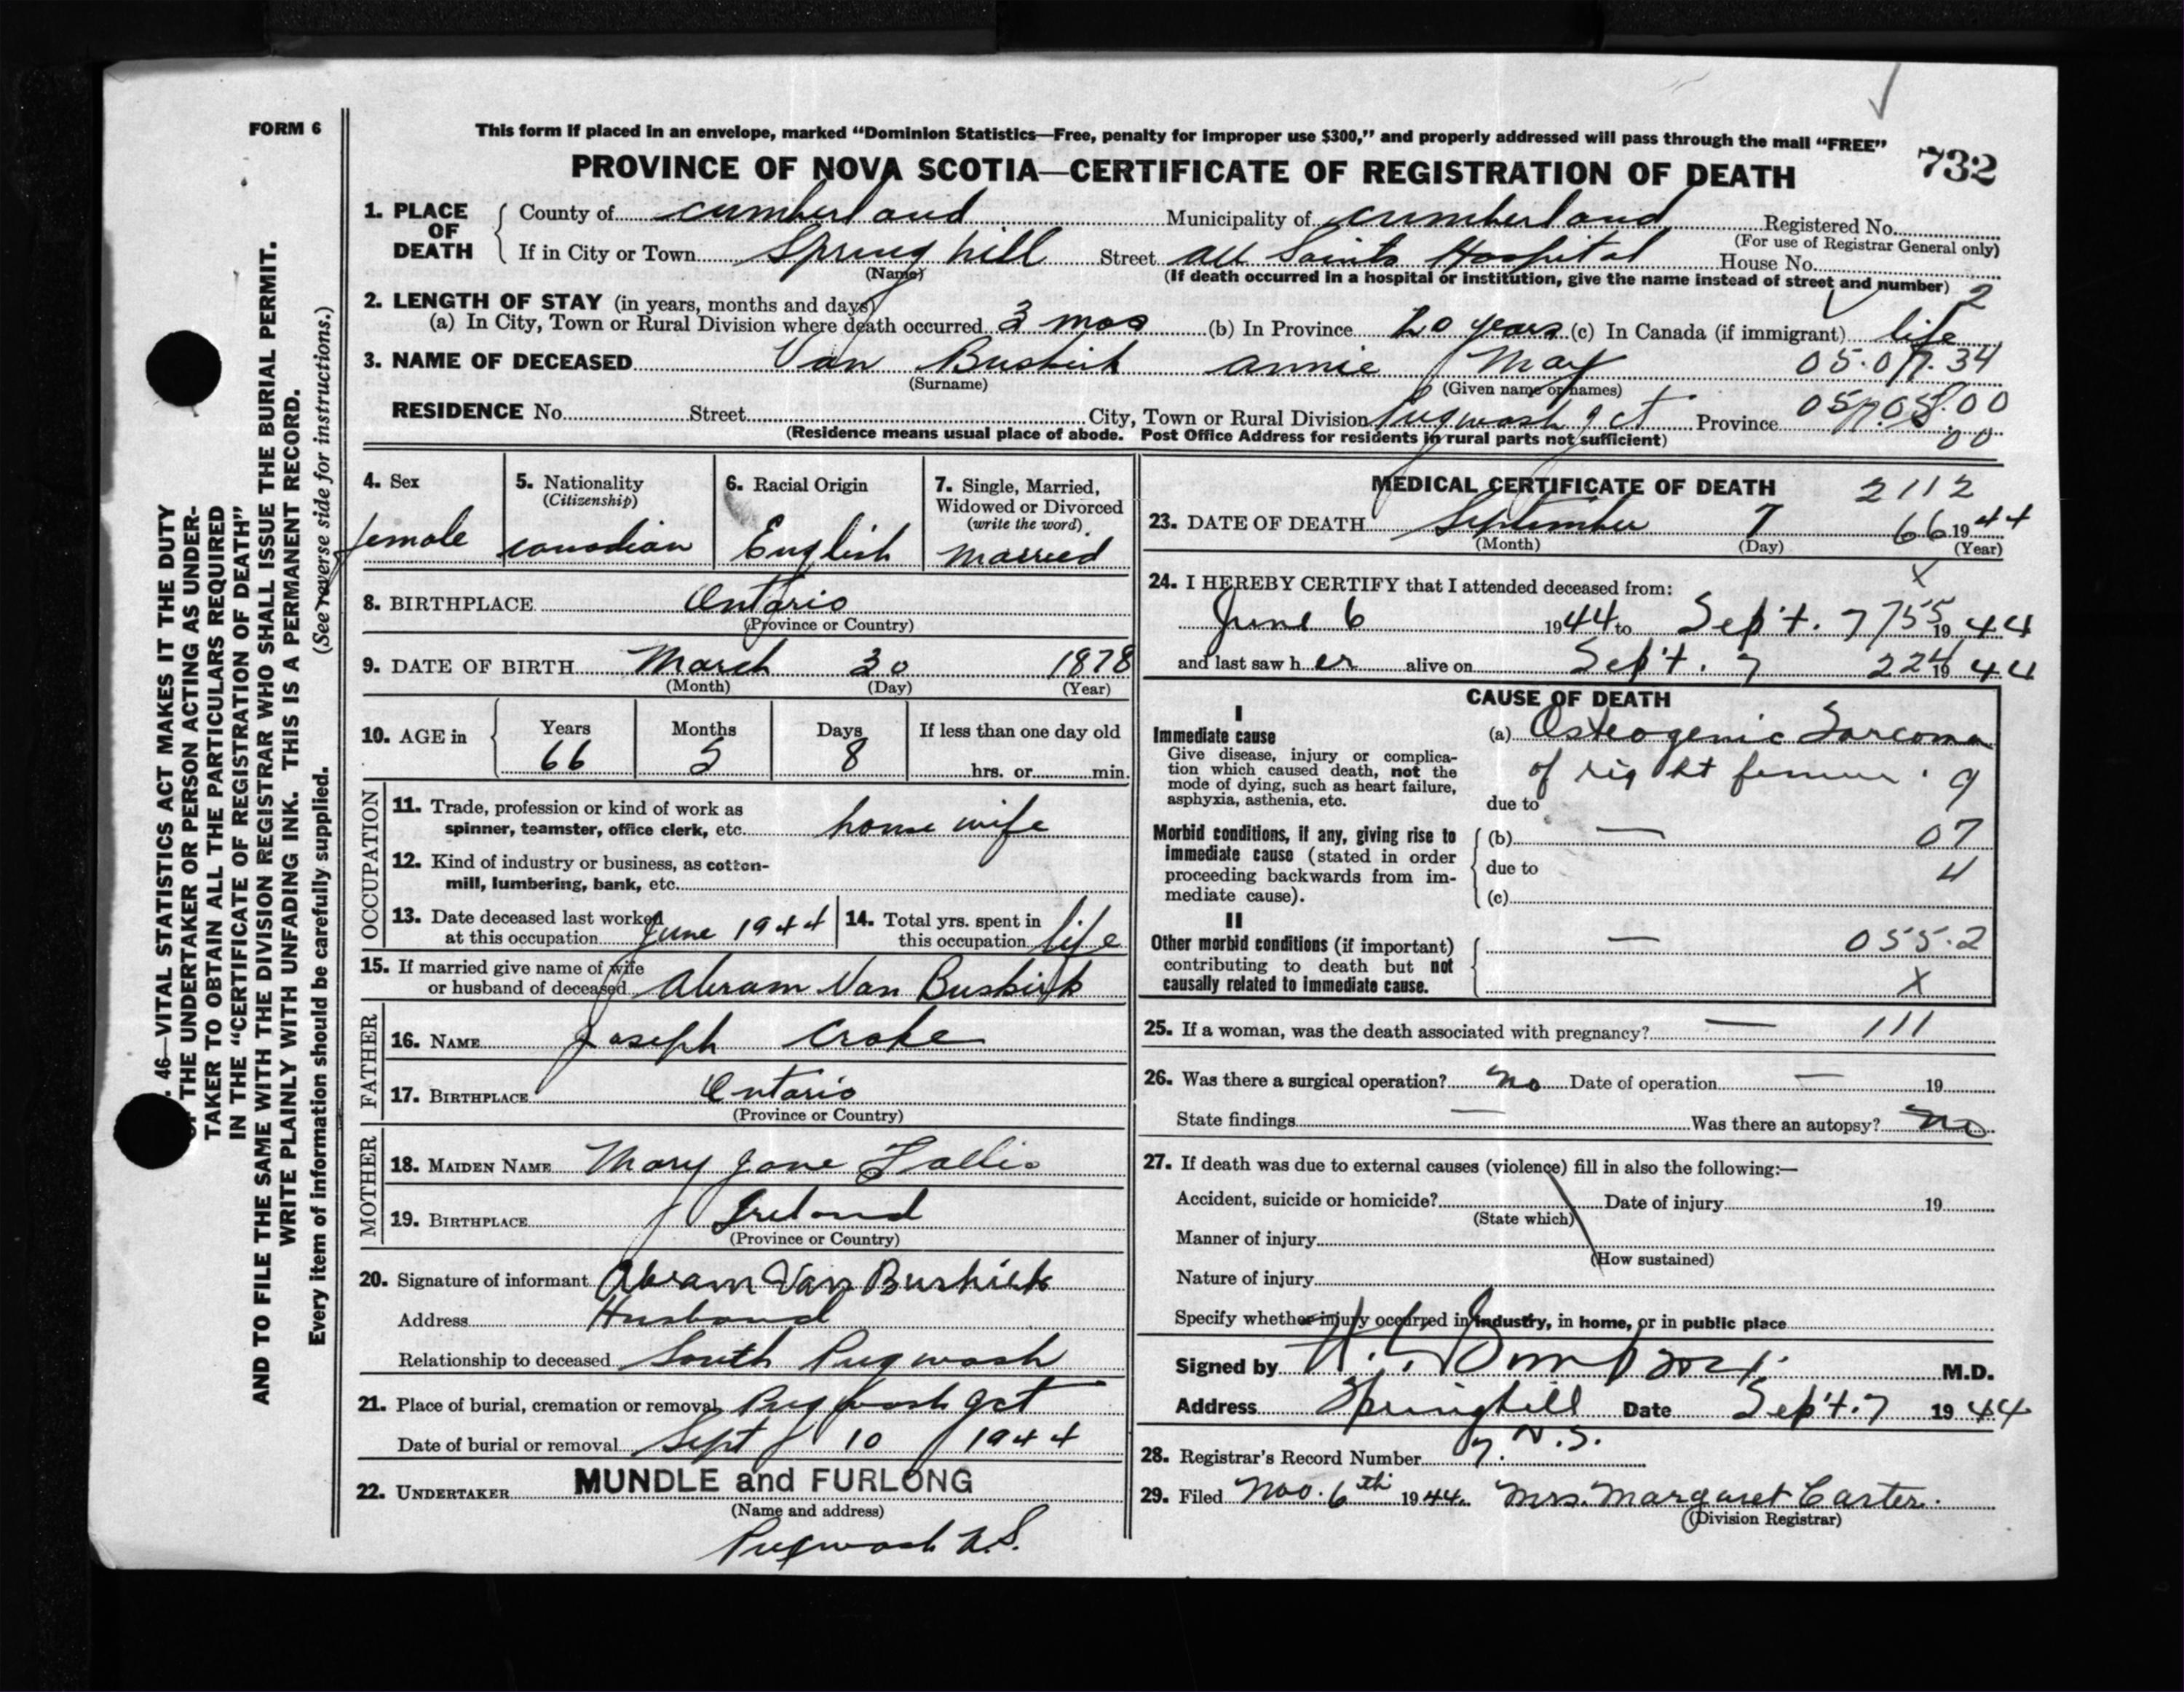 FORM 6
This form if placed in an envelope, marked “Dominion Statistics—Free, penalty for improper use $300,” and properly addressed will pass through the mail “FREE”
PROVINCE OF NOVA SCOTIA—CERTIFICATE OF REGISTRATION OF DEATH 732
1. PLACE OF DEATH County of Cumberland Municipality of Cumberland Registered No.
(For use of Registrar General only)
If in City or Town Spring hill Street All Saints Hospital House No.
(Name) (If death occurred in a hospital or institution, give the name instead of street and number) 2
2. LENGTH OF STAY (in years, months and days)
(a) In City, Town or Rural Division where death occurred 3 mos (b) In Province 20 years (c) In Canada (if immigrant) life
3. NAME OF DECEASED Van Buskirk Annie May 05.07.34
(Surname) (Given name or names)
RESIDENCE No. Street City, Town or Rural Division Pugwash Jct Province
(Residence means usual place of abode. Post Office Address for residents in rural parts not sufficient) 00
4. Sex female
5. Nationality (Citizenship) Canadian
6. Racial Origin English
7. Single, Married, Widowed or Divorced (write the word) Married
8. BIRTHPLACE Ontario
(Province or Country)
9. DATE OF BIRTH March 30 1878
(Month) (Day) (Year)
10. AGE in Years 66 Months 5 Days 8 If less than one day old hrs. or min.
OCCUPATION
11. Trade, profession or kind of work as spinner, teamster, office clerk, etc. house wife
12. Kind of industry or business, as cotton-mill, lumbering, bank, etc.
13. Date deceased last worked at this occupation June 1944 14. Total yrs. spent in this occupation life
15. If married give name of wife or husband of deceased Abram Van Buskirk
FATHER
16. NAME Joseph Croke
17. BIRTHPLACE Ontario
(Province or Country)
MOTHER
18. MAIDEN NAME Mary Jane
19. BIRTHPLACE Ireland
(Province or Country)
20. Signature of informant Abram Van Buskirk
Address Husband
Relationship to deceased South Pugwash
21. Place of burial, cremation or removal Pugwash Jct
Date of burial or removal Sept 10 1944
22. UNDERTAKER MUNDLE and FURLONG
(Name and address)
Pugwash N.S.
MEDICAL CERTIFICATE OF DEATH 2112
23. DATE OF DEATH September 7 66 1944
(Month) (Day) (Year)
24. I HEREBY CERTIFY that I attended deceased from: X
June 6 1944 to Sep't. 7 755 1944
and last saw her alive on Sep't. 7 224 1944
CAUSE OF DEATH
I
Immediate cause (a) Osteogenic Sarcoma
Give disease, injury or complication which caused death, not the mode of dying, such as heart failure, asphyxia, asthenia, etc.
of right femur. 9
due to
Morbid conditions, if any, giving rise to immediate cause (stated in order proceeding backwards from immediate cause).
(b) — 07
due to 4
(c)
II
Other morbid conditions (if important) contributing to death but not causally related to immediate cause.
— 055.2
X
25. If a woman, was the death associated with pregnancy? — 111
26. Was there a surgical operation? No Date of operation — 19
State findings — Was there an autopsy? No
27. If death was due to external causes (violence) fill in also the following:—
Accident, suicide or homicide? Date of injury 19
(State which)
Manner of injury
(How sustained)
Nature of injury
Specify whether injury occurred in industry, in home, or in public place
Signed by M.D.
Address Springhill Date Sep't. 7 1944
N.S.
28. Registrar's Record Number 7.
29. Filed Nov. 6th 1944. Mrs. Margaret Carter.
(Division Registrar)
. 46—VITAL STATISTICS ACT MAKES IT THE DUTY
OF THE UNDERTAKER OR PERSON ACTING AS UNDER-
TAKER TO OBTAIN ALL THE PARTICULARS REQUIRED
IN THE “CERTIFICATE OF REGISTRATION OF DEATH”
AND TO FILE THE SAME WITH THE DIVISION REGISTRAR WHO SHALL ISSUE THE BURIAL PERMIT.
WRITE PLAINLY WITH UNFADING INK. THIS IS A PERMANENT RECORD.
Every item of information should be carefully supplied. (See reverse side for instructions.)